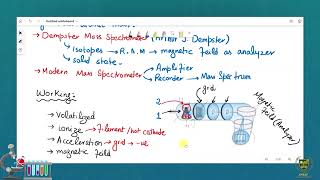 → Dempster Mass Spectrometer (Arthur J. Dempster)
↳ isotopes → R.A.M → magnetic feild as analyzer
↳ solid state.
→ Modern Mass Spectrometer → Amplifier
→ Recorder → Mass Spectrum
grid
Working:
→ Volatilized
→ ionize → filement / hot cathode
→ Acceleration → grid → -ve
→ magnetic feild
2
1
Magnetic
feild (Analyzer)